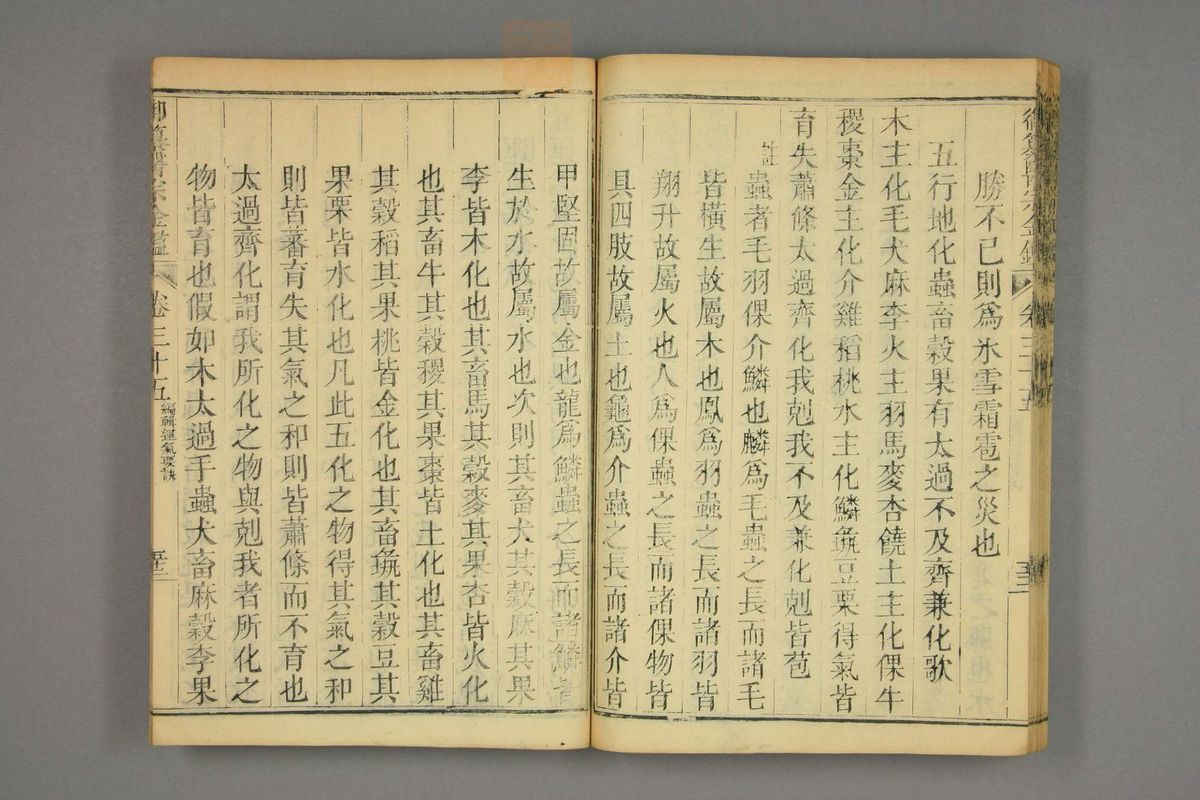 御纂醫宗金鑑 卷三十五
勝不已則爲氷雪霜雹之災也
五行地化蟲畜穀果有太過不及齊兼化歌
木主化毛犬麻李火主羽馬麥杏饒土主化倮牛
稷棗金主化介雞稻桃水主化鱗彘豆栗得氣皆
育失蕭條太過齊化我剋我不及兼化剋皆苞
註蟲者毛羽倮介鱗也麟爲毛蟲之長而諸毛
皆橫生故屬木也鳳爲羽蟲之長而諸羽皆
翔升故屬火也人爲倮蟲之長而諸倮物皆
具四肢故屬土也龜爲介蟲之長而諸介皆
甲堅固故屬金也龍爲鱗蟲之長而諸鱗皆
生於水故屬水也次則其畜犬其穀麻其果
李皆木化也其畜馬其穀麥其果杏皆火化
也其畜牛其穀稷其果棗皆土化也其畜雞
其穀稻其果桃皆金化也其畜彘其穀豆其
果栗皆水化也凡此五化之物得其氣之和
則皆蕃育失其氣之和則皆蕭條而不育也
太過齊化謂我所化之物與剋我者所化之
物皆育也假如木太過手蟲犬畜麻穀李果
御纂醫宗金鑑 卷三十五 編輯運氣要訣